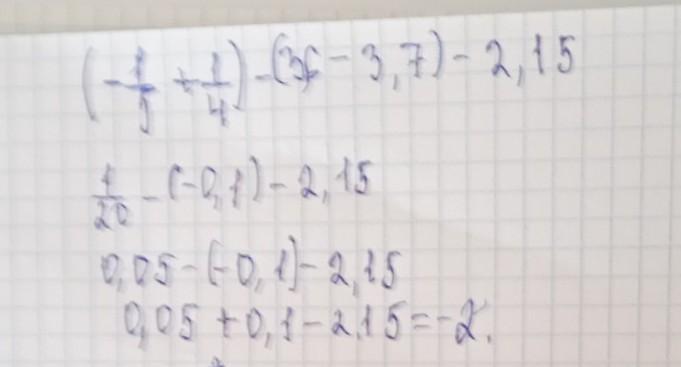 (-1/5 + 1/4) - (3,6 - 3,7) - 2,15
1/20 - (-0,1) - 2,15
0,05 - (-0,1) - 2,15
0,05 + 0,1 - 2,15 = -2.